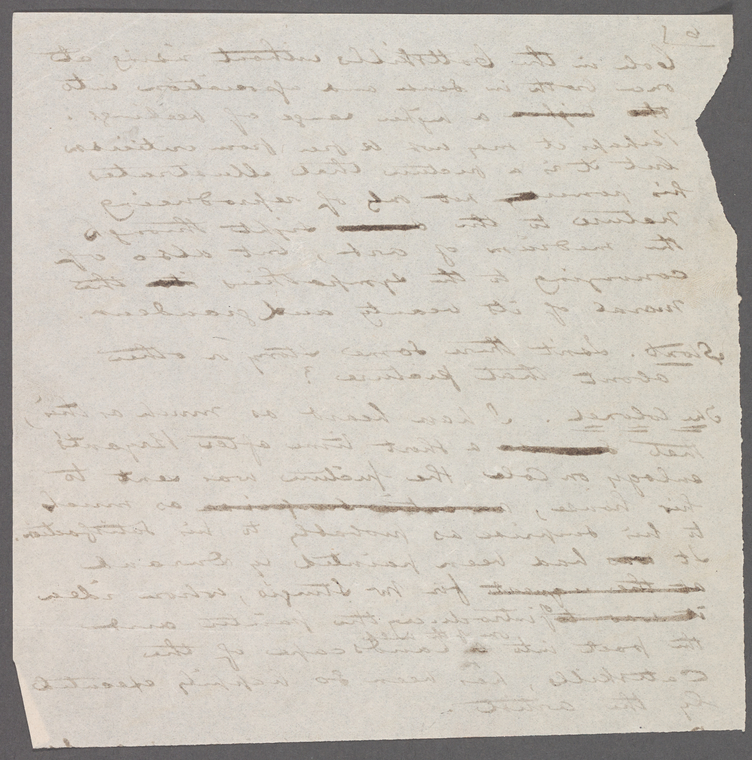 Cole in the Cattskills without rising at
once both in and expression into
the a higher range of feelings.
Perhaps it may not be free from criticism
but it is a picture that illustrates
his power not only of reproducing
nature to the sight through
the medium of art, but also of
conveying to the sympathies the
moral of its beauty and grandeur.
Isn't there some story or other
about that picture?
The Colonel. I have heard as much as this,
that a short time after Bryant's
eulogy on Cole the picture was sent to
his house, as much
to his surprise as probably to his satisfaction.
It had been painted by Durand
at the request for Mr Sturges, whose idea
of introducing the painter and
the poet into a landscape of the
Cattskills, has been so happily executed
by the artist.